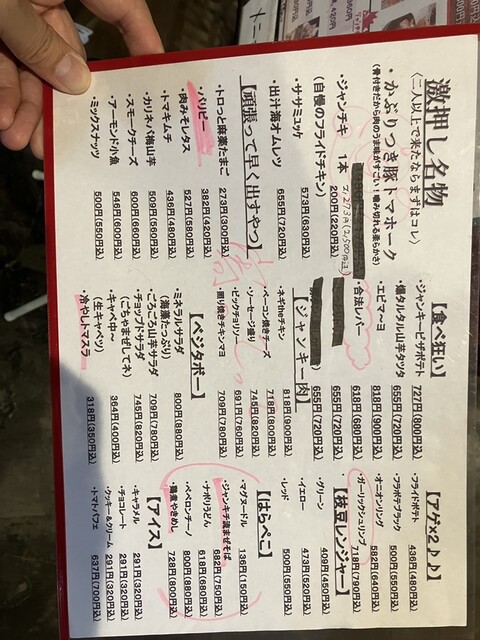 激押し名物
(二人以上で来たならまずはコレ)
・かぶりつき豚トマホーク
(骨付きだから肉のうま味がすごい!噛み切れる柔らかさ)
2,273円(2,500円込)
・ジャンチキ 1本 200円(220円込)
(自慢のフライドチキン)
・ササミュッケ 573円(630円込)
・出汁海オムレツ 655円(720円込)
【頑張って早く出すやつ】
・トロっと麻薬たまご 273円(300円込)
・バリピー 382円(420円込)
・肉みそレタス 527円(580円込)
・トマキムチ 436円(480円込)
・カリネバ梅山芋 509円(560円込)
・スモークチーズ 600円(660円込)
・アーモンド小魚 546円(600円込)
・ミックスナッツ 500円(550円込)
【食べ狂い】
・ジャンキーピザポテト 727円(800円込)
・爆タルタル山芋タツタ 818円(900円込)
・エビマーヨ 818円(900円込)
・合法レバー 618円(680円込)
655円(720円込)
655円(720円込)
【ジャンキー肉】
・ネギtheチキン 818円(900円込)
・ベーコン焼きチーズ 718円(800円込)
・ソーセージ盛り 745円(820円込)
・ビックチョリソー 691円(760円込)
・照り焼きチキンマヨ 709円(780円込)
【ベジタボー】
・ミネラルサラダ 800円(880円込)
(海藻たっぷり)
・ごろごろ山芋サラダ 709円(780円込)
・チョップドサラダ 745円(820円込)
(ごちゃまぜしてネ)
・キャベ中〜 364円(400円込)
(生キャベツ)
・冷やしトマスラ 318円(350円込)
【アゲ×2♪♪】
・フライドポテト 436円(480円込)
・フラポテブラック 500円(550円込)
・オニオンリング 582円(640円込)
・ガーリックシュリンプ 718円(790円込)
【枝豆レンジャー】
・グリーン 409円(450円込)
・イエロー 473円(520円込)
・レッド 500円(550円込)
【はらぺこ】
・マグヌードル 136円(150円込)
・ジャンキチ流まぜそば 682円(750円込)
・ナポリうどん 618円(680円込)
・ペペロンチーノ 800円(880円込)
・鶏煮やきめし 728円(800円込)
【アイス】
・キャラメル 291円(320円込)
・チョコレート 291円(320円込)
・クッキー&クリーム 291円(320円込)
・トマトパフェ 637円(700円込)